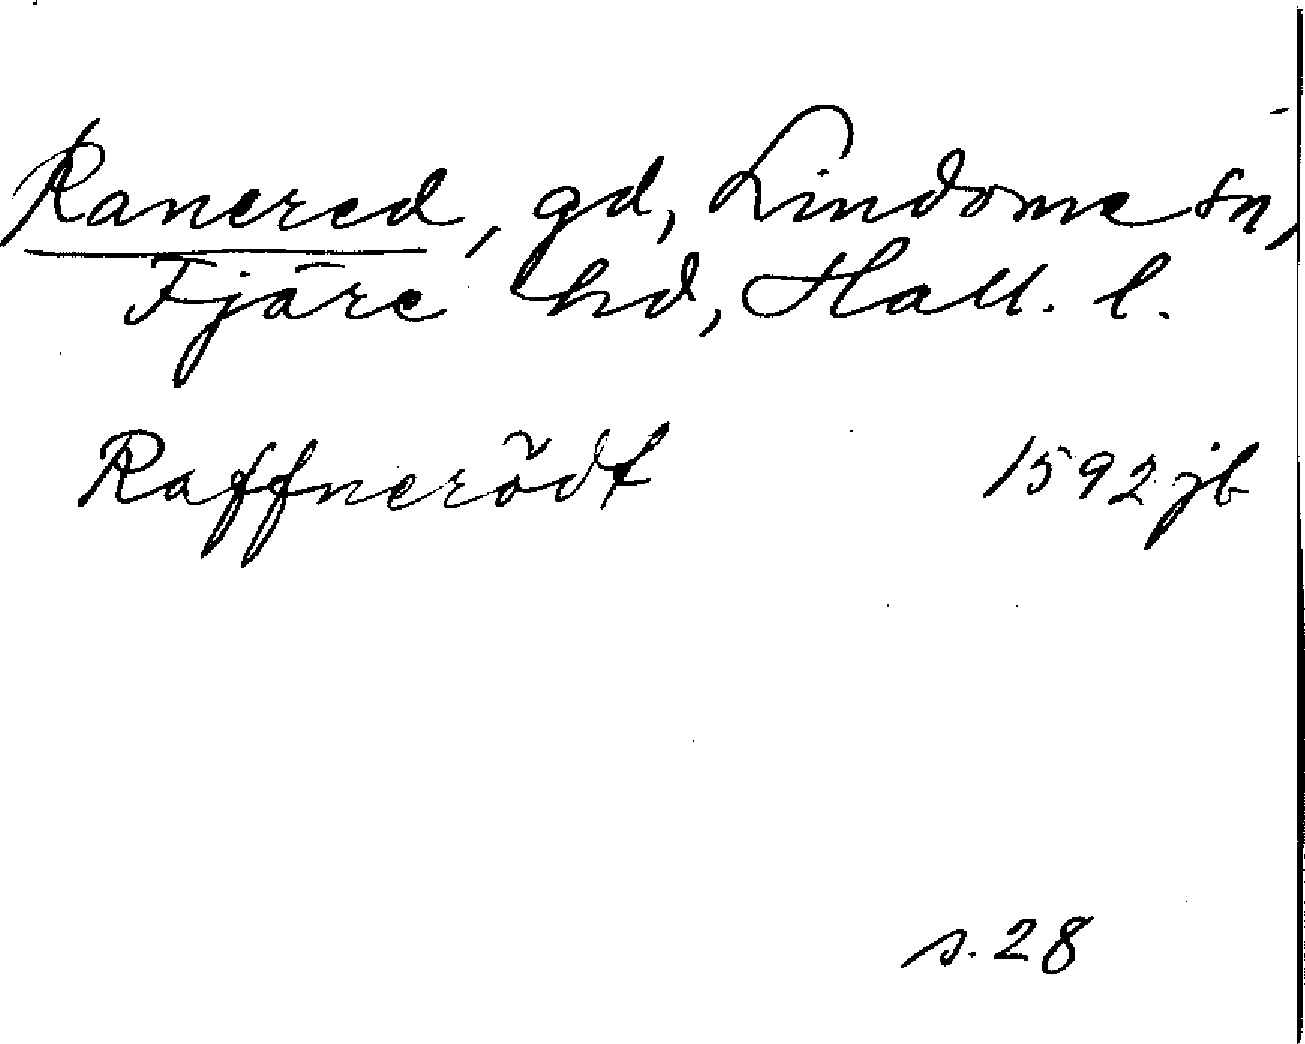 Ranered, gd, Lindome sn,
Fjäre hd, Hall. l.
Raffnerödt 1592 jb
s. 28